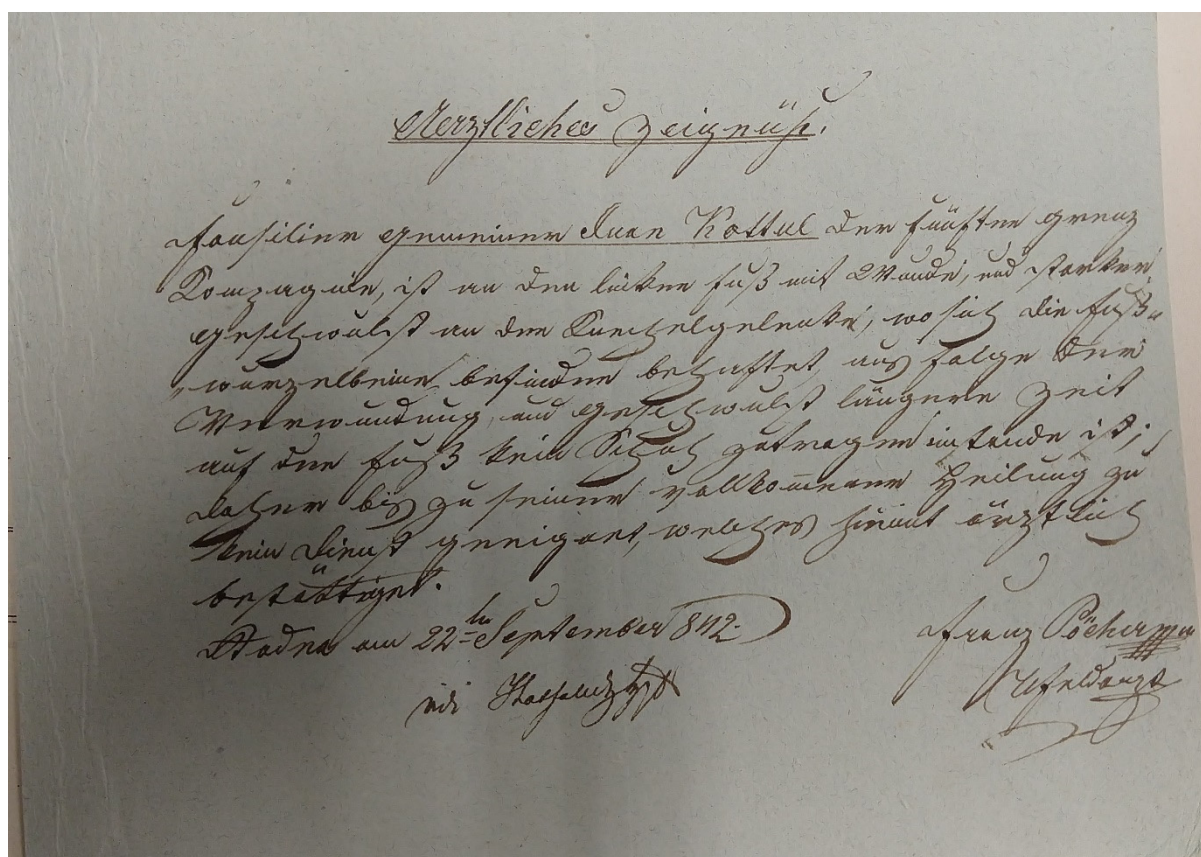 Aerztliches Zeignüß.
Fousilier gemeiner Iuan Kottul der fünften grenz
Kompagnie, ist an den linken fuß mit Wunde, und starker
geschwulst an den Knechelgelenke, wo sich die fuß=
wurzelbeine befinden behaftet, aus folge der
Verwundung, und geschwulst längere Zeit
auf den fuß kein Schuh zutragen imtande ist;
daher bis zu seiner vollkommener Heilung zu
kein Dienst geeignet, welches hiemit ärztlich
bestättiget.
am 22=ten September 842
Franz
vidi
Ufeldarzt